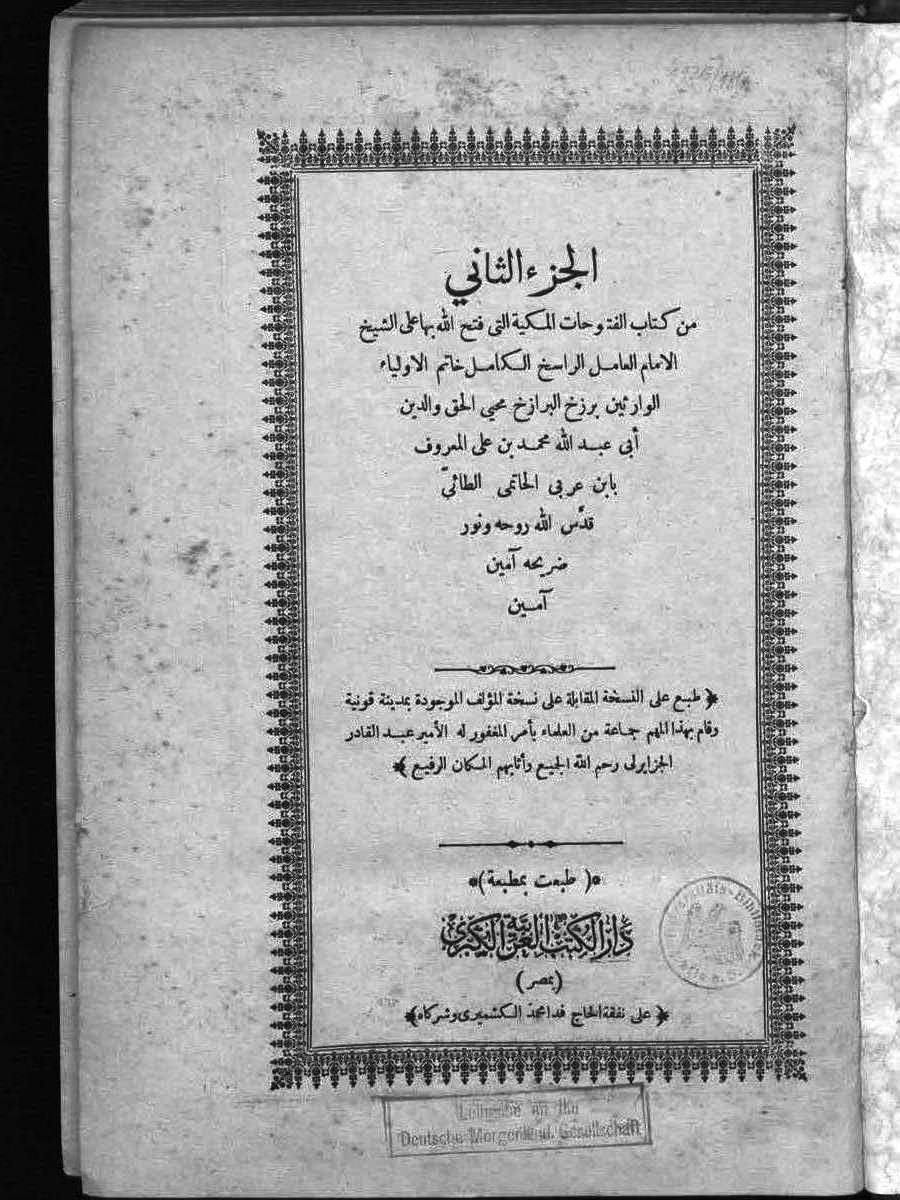 الجزء الثاني
من كتاب الفتوحات المكية التى فتح الله بها على الشيخ
الامام العامل الراسخ الكامل خاتم الاولياء
الوارثين برزخ البرازخ محيى الحق والدين
أبى عبد الله محمد بن على المعروف
بابن عربى الحاتمى الطائىّ
قدّس الله روحه ونور
ضريحه آمين
آمين
﴿ طبع على النسخة المقابلة على نسخة المؤلف الموجودة بمدينة قونية
وقام بهذا المهم جماعة من العلماء بأمر المغفور له الأمير عبد القادر
الجزايرلى رحم الله الجميع وأثابهم المكان الرفيع ﴾
( طبعت بمطبعة )
دار الكتب العربية الكبرى
( بمصر )
﴿ على نفقة الحاج فدا محمد الكشميرى وشركاه ﴾
Leihgabe an die
Deutsche Morgenländ. Gesellschaft